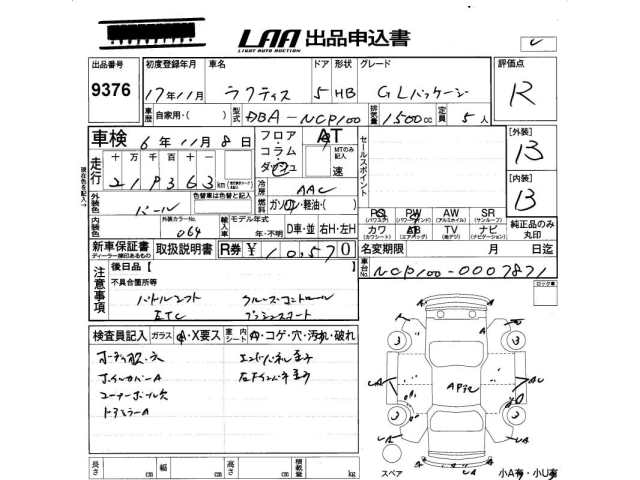 LAA 出品申込書
LIGHT AUTO AUCTION
出品番号
9376
初度登録年月
17年11月
車名
ラクティス
ドア
5
形状
HB
グレード
GLパッケージ
評価点
R
車歴
自家用・( )
型式
DBA-NCP100
排気量
1500cc
定員
5人
車検
6年11月8日
フロア
コラム
ダッシュ
AT
MTのみ記入
速
セールスポイント
[外装]
13
[内装]
13
走行
十 万 千 百 十 一
km
冷房
AAC
燃料
ガソリン・軽油・( )
外装色
パール
色替車は色替と記入
外装カラーNo.
064
内装色
輸入車
モデル年式
年・不明
D車・並
右H・左H
PS
(パワステ)
PW
(パワーウィンド)
AW
(アルミホイル)
SR
(サンルーフ)
カワ
(カワシート)
AB
(エアバッグ)
TV
(地デジ)
ナビ
(ナビゲーション)
純正品のみ
丸印
新車保証書
ディーラー捺印あるもの
取扱説明書
R券 ¥10,570
名変期限
月
日迄
車台No.
NCP100-0007871
注意事項
後日品[ ]
不具合箇所等
パドルシフト
クルーズコントロール
ETC
プッシュスタート
ロック車
検査員記入
ガラス
A・X要ス
室内
シート
A・コゲ・穴・汚れ・破れ
ホイルカバーA
コーナーポール欠
ドアミラーA
AP3C
長さ
cm
幅
cm
高さ
cm
積載量
kg
スペア
小A有・小U有